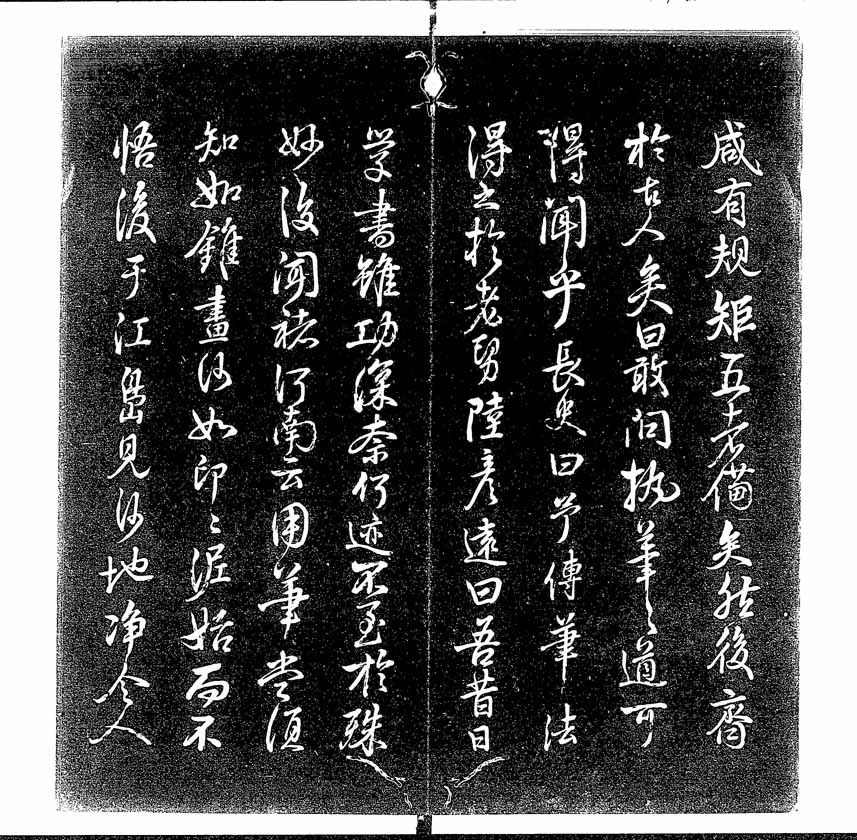 咸有规矩五者備矣然後齊
於古人矣曰敢问执筆之道可
得闻乎長史曰予傳筆法
得之於老舅陸彦遠曰吾昔日
学書雖功深奈何迹不至於殊
妙後闻褚河南云用筆當須
知如錐畫沙如印印泥始而不
悟後于江島見沙地净令人